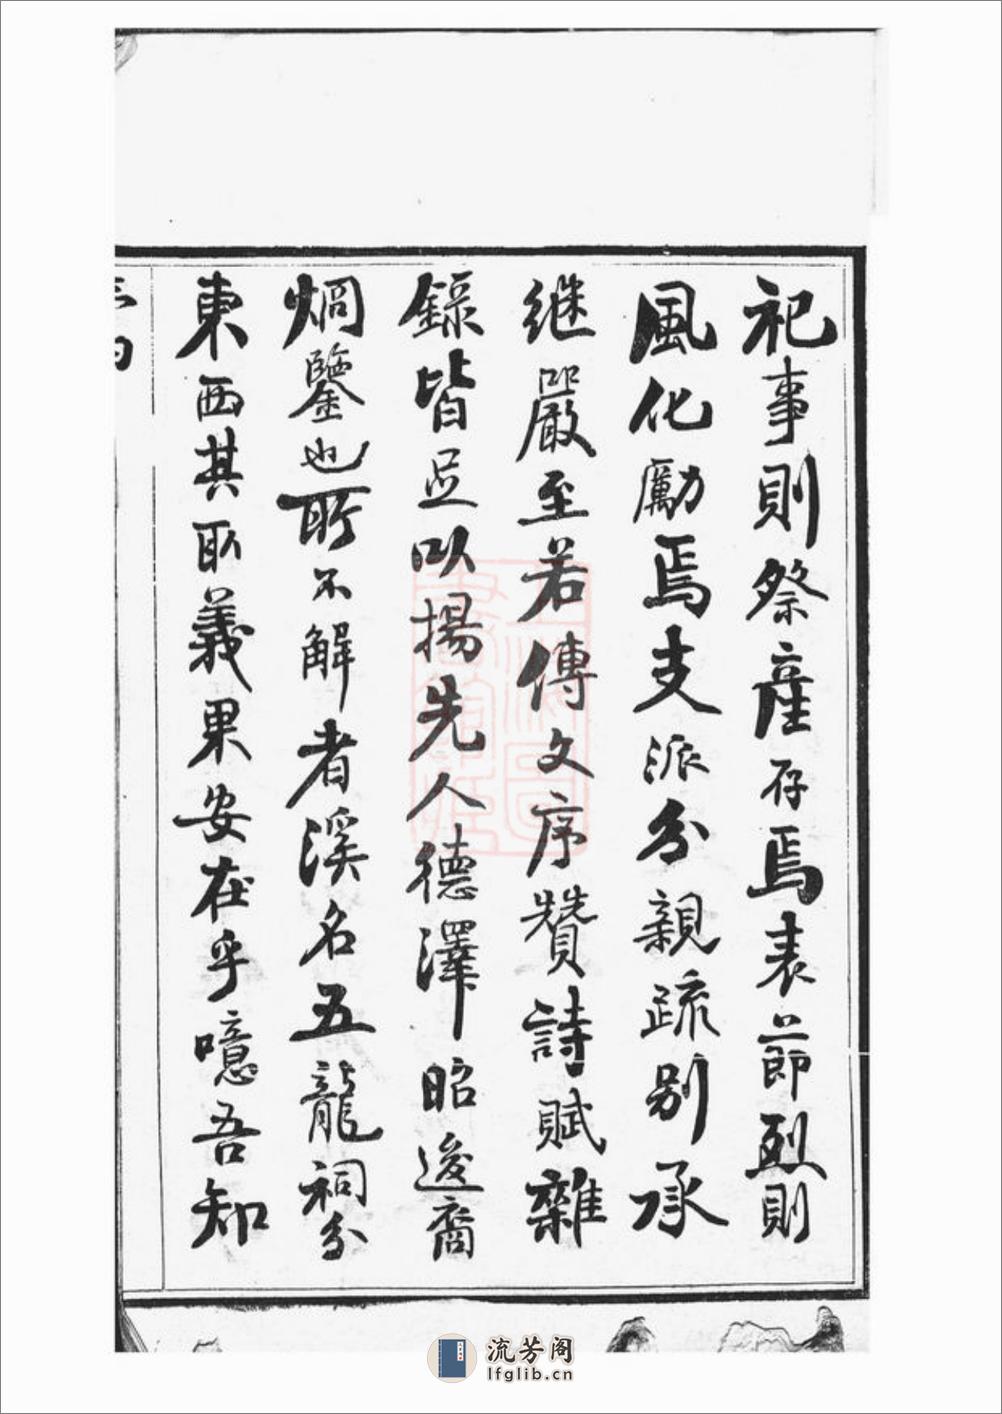 祀事則祭產存焉表節烈則
風化勵焉支派分親疏別承
继嚴至若傳文序贊詩賦雜
錄皆足以揚先人德澤昭逡裔
烱鑒也所不解者溪名五龍祠分
東西其取義果安在乎噫吾知
流芳阁
lfglib.cn